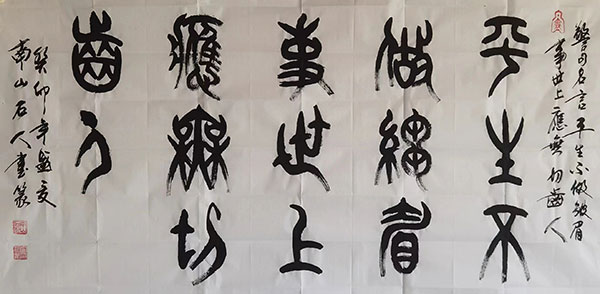 警句名言 平生不做皱眉
事世上應無切齒人
平生不
做縐眉
事世上
應無切
齒人
癸卯年盛夏
南山石人書篆